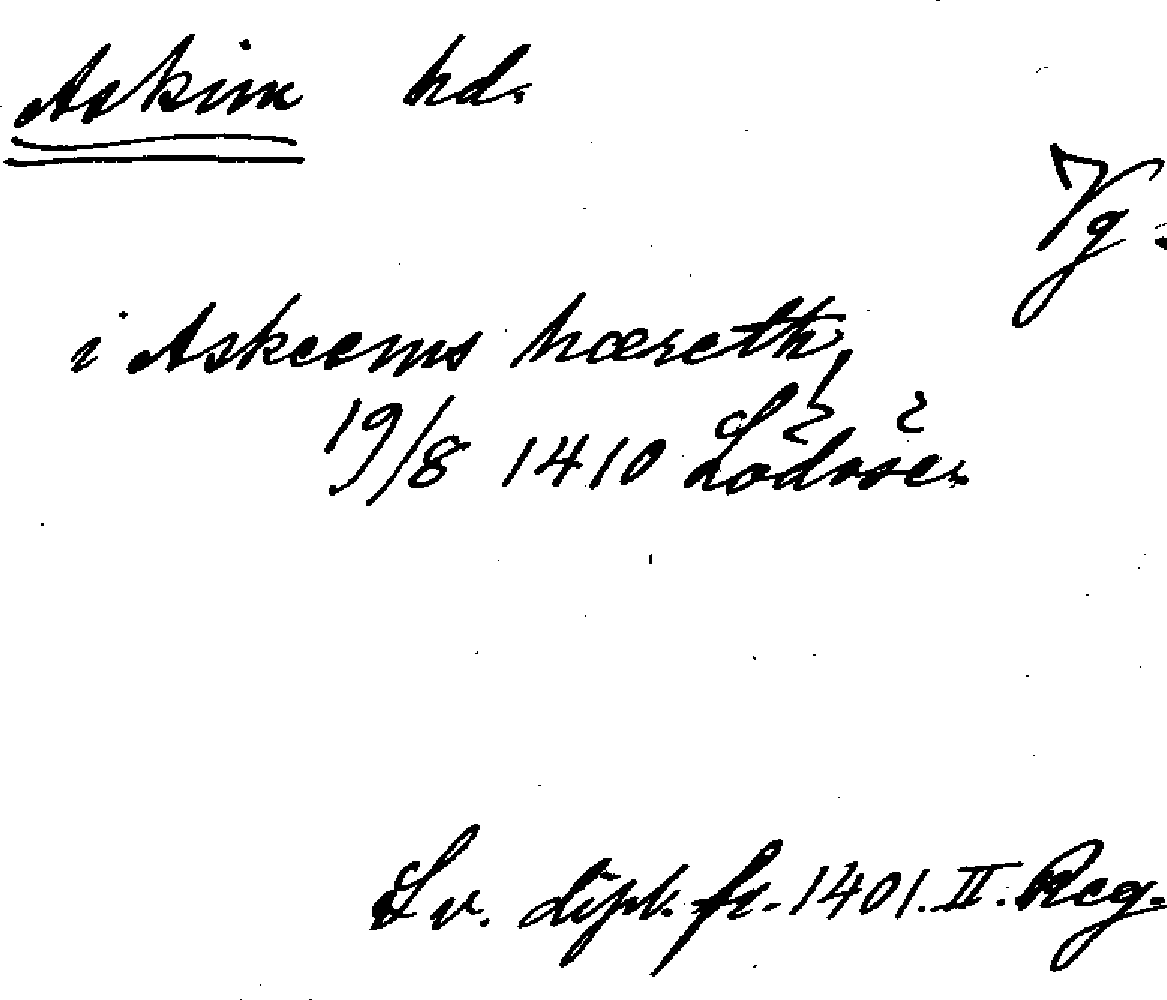 Askim hd.
Vg.
i Askeems hæreth,
19/8 1410 Lödöse.
Sv. dipl. fr. 1401. II. Reg.